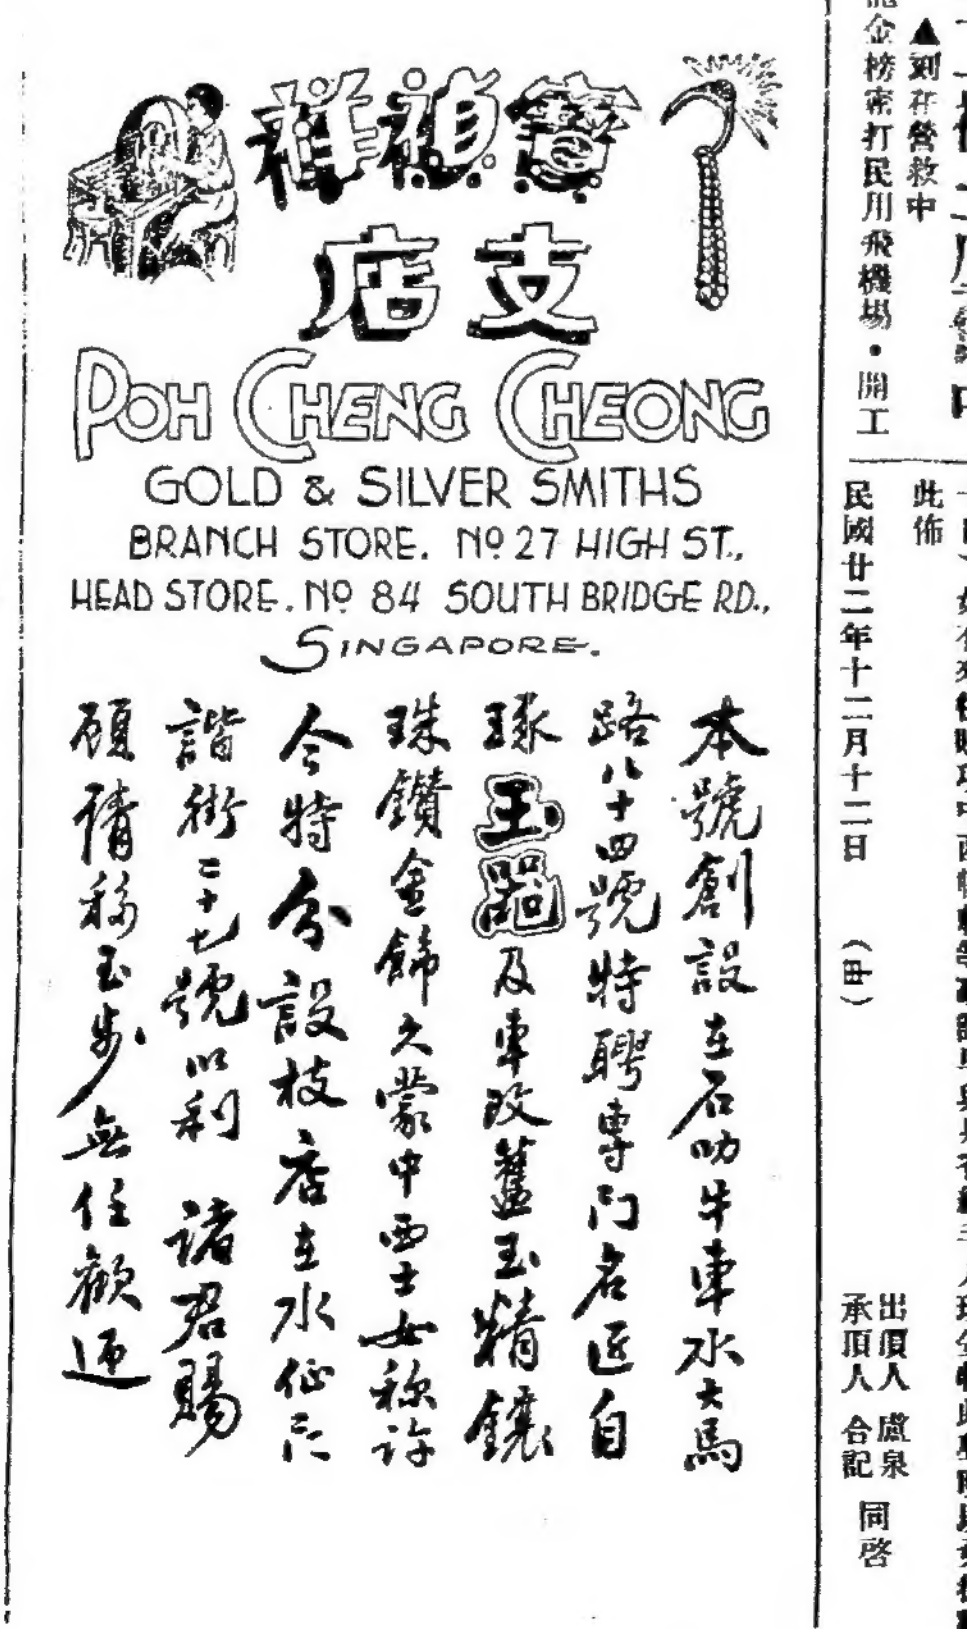 寶禎祥
支店
POH CHENG CHEONG
GOLD & SILVER SMITHS
BRANCH STORE. No 27 HIGH ST.,
HEAD STORE. No 84 SOUTH BRIDGE RD.,
SINGAPORE.
本號創設在石叻牛車水大馬
路八十四號特聘專門名匠自
琢玉器及車改舊玉精鑲
珠鑽金飾久蒙中西士女称許
今特分設枝店在水仙
諧街二十七號以利 諸君賜
顧請移玉步無任歡迎
▲刻在營救中
金榜密打民用飛機場・開工
此佈
民國廿二年十二月十二日 (冊)
出頂人 盧泉
承頂人 合記 同啓